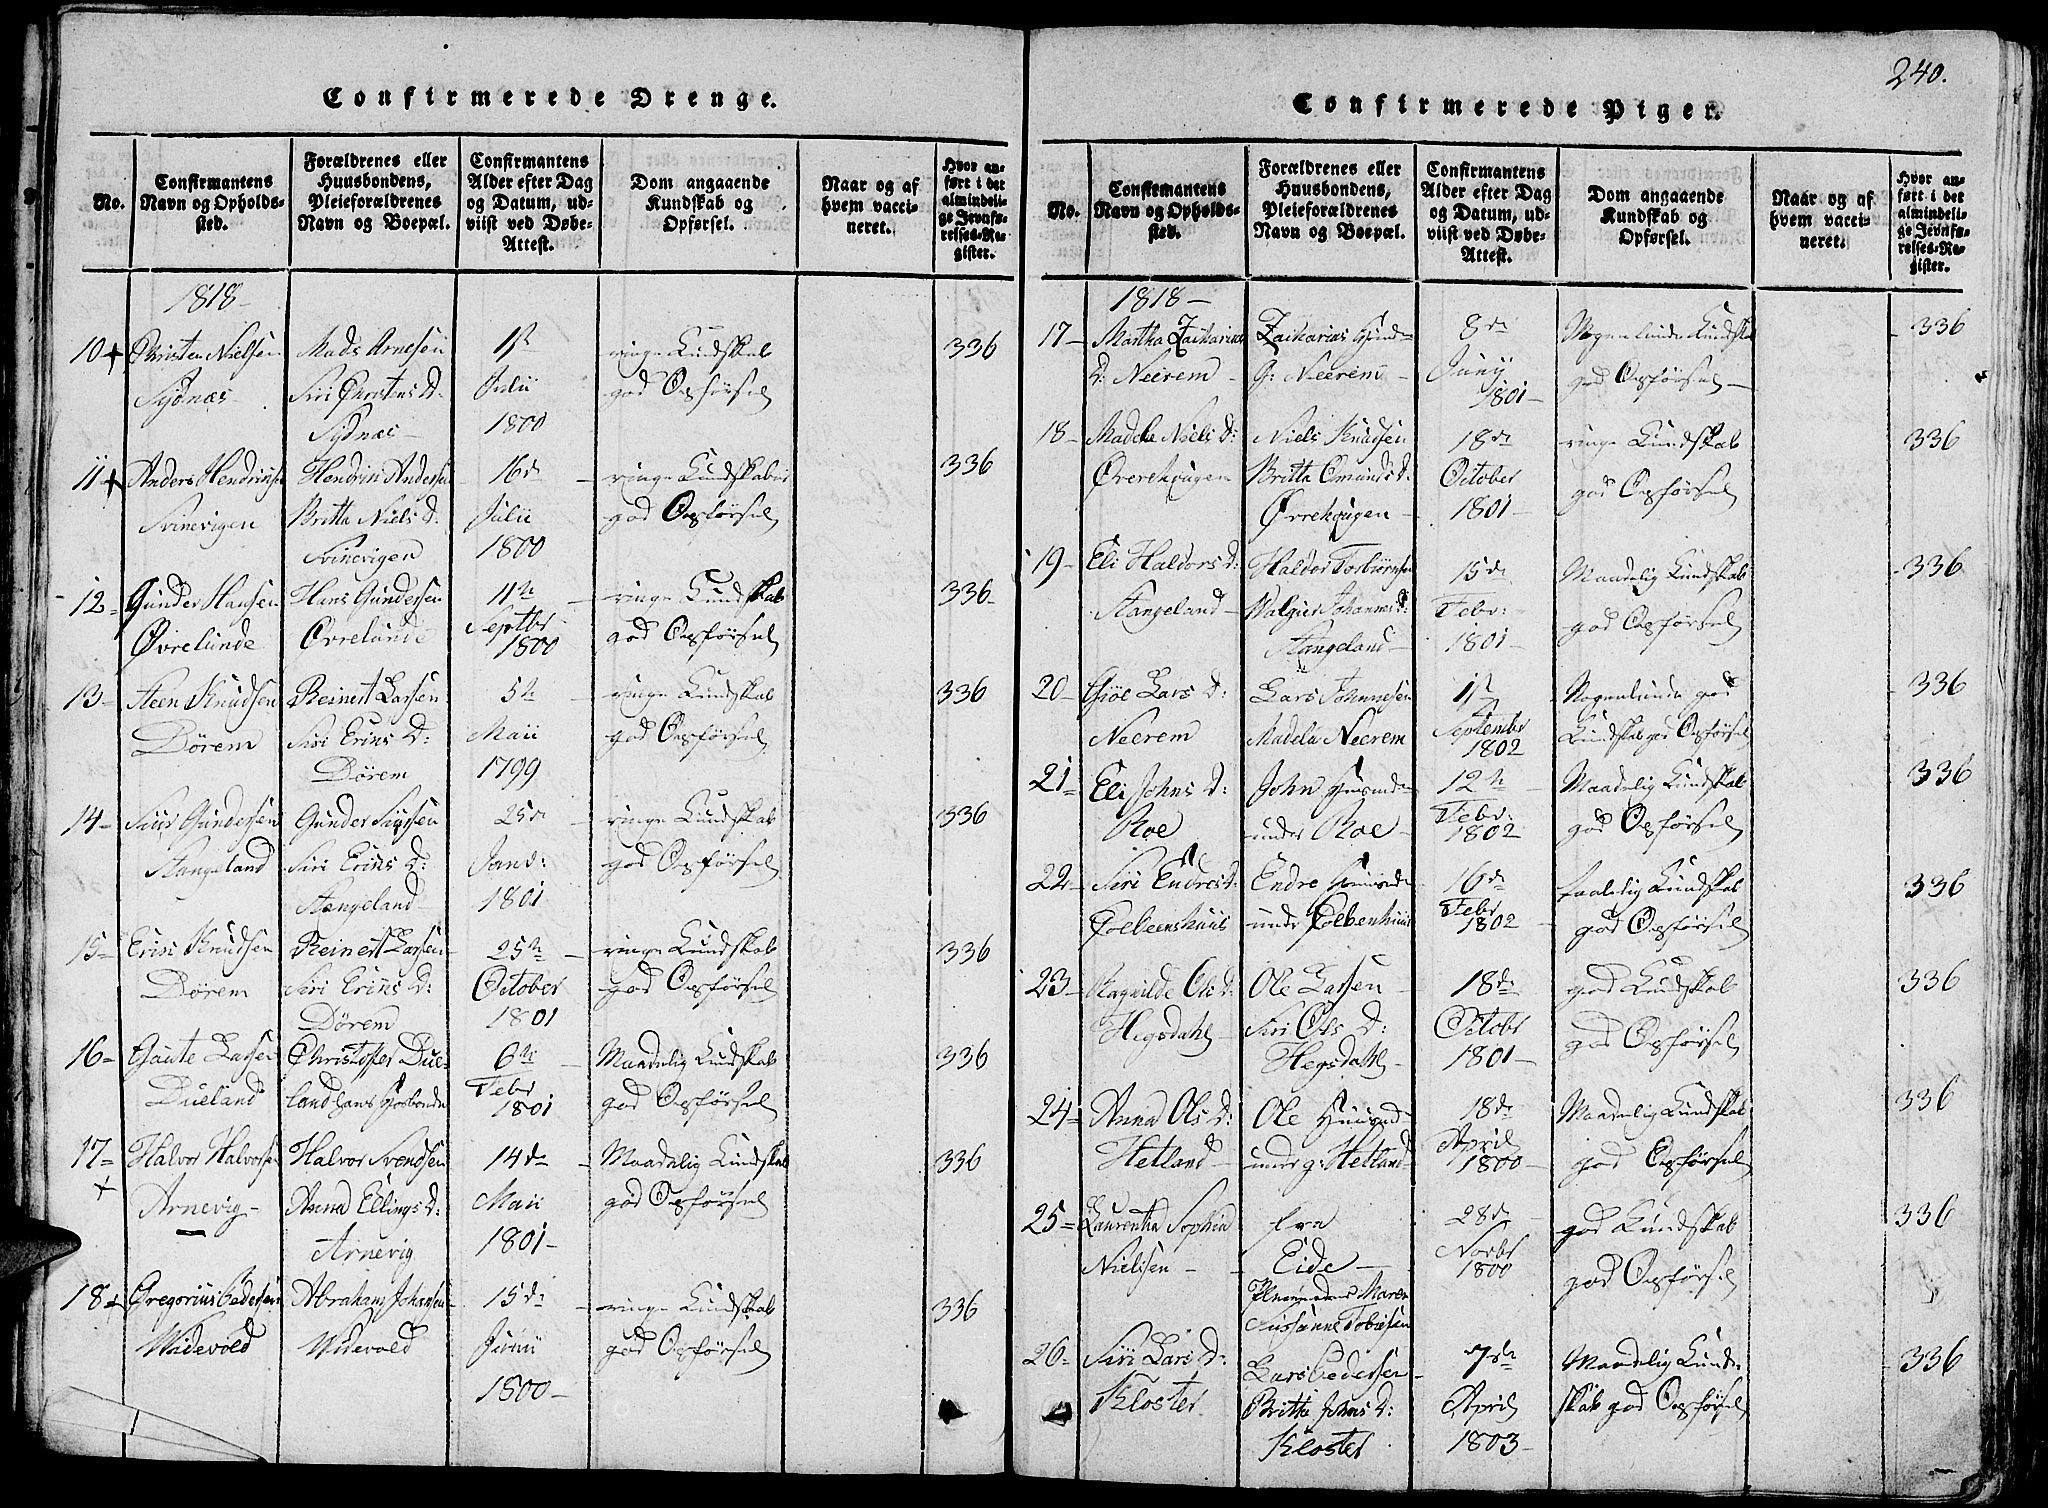 240.
Confirmerede Drenge.
No.
Confirmantens
Navn og Opholds-
sted.
Forældrenes eller
Huusbondens,
Pleieforældrenes
Navn og Boepæl.
Confirmantens
Alder efter Dag
og Datum, ud-
viist ved Døbe-
Attest.
Dom angaaende
Kundskab og
Opførsel.
Naar og af
hvem vacci-
neret.
Hvor an-
ført i det
almindeli-
ge Jevnfø-
relses-Re-
gister.
1818-
10+ Christen Nielsen Mads Arnesen 1st ringe Kundskab 336
Sydnæs- Siri Christens D: Julii god Opførsel
Sydnæs- 1800
11+ Anders Hendrichsen Hendrich Andersen 16de ringe Kundskaber 336
Svinevigen Britta Niels D: Julii god Opførsel
Svinevigen 1800
12- Gunder Hansen Hans Gundersen 11te ringe Kundskab 336-
Øvrelunde Øvrelunde Septbr god Opførsel
1800
13- Steen Knudsen Reinert Larsen 5te ringe Kundskab 336
Dörem Siri Erics D: Maii god Opførsel
Dörem 1799
14- Siur Gundersen Gunder 25de ringe Kundskab 336
Stangeland Siri Erics D: Janv: god Opførsel
Stangeland 1801
15- Knudsen Reinert Larsen 25te ringe Kundskab 336
Dörem Siri Erics D: October god Opførsel
Dörem 1801
16- Gaute Larsen Christoffer Due- 6te Maadelig Kundskab 336
Dueland land hans Hosbonde Febr god Opførsel
1801
17- Halvor Halvorsen Halvor Svendsen 14de Maadelig Kundskab 336
+ Arnevig- Anna Ellings D: Maii god Opførsel
Arnevig 1801-
18+ Gregorius Pedersen Abraham Johansen 15de ringe Kundskab 336
Widevold Widevold Junii god Opførsel
1800-
Confirmerede Piger.
No.
Confirmantens
Navn og Opholds-
sted.
Forældrenes eller
Huusbondens,
Pleieforældrenes
Navn og Boepæl.
Confirmantens
Alder efter Dag
og Datum, ud-
viist ved Døbe-
Attest.
Dom angaaende
Kundskab og
Opførsel.
Naar og af
hvem vacci-
neret.
Hvor an-
ført i det
almindeli-
ge Jevnfø-
relses-Re-
gister.
1818-
17- Martha Zacharias Zacharias 8de Nogenlunde Kundskab 336
D: Neerem- G: Neerem- Juny god Opførsel-
1801-
18- Madele Niels D: Niels Knudsen 18de ringe Kundskab 336
Øvrehougen Britta Omunds D: October god Opførsel
Øvrehougen- 1801-
19- Eli Haldors D: Haldor Torbiörnsen 15de Maadelig Kundskab 336
Stangeland- Johannes D: Febr: god Opførsel
Stangeland- 1801-
20- Giöe Lars D: Lars Johannesen 1st Nogenlunde god 336
Neerem Madela Neerem September Kundskab god Opførsel
1802
21- Eli Johns D: John Huusmd- 12te Maadelig Kundskab 336
Roe under Roe- Febr: god Opførsel
1802
22- Siri Endres D: Endre Huusmd- 16de taalelig Kundskab 336
under Febr god Opførsel
1802
23- Ragnilde Ols D: Ole Larsen 18de god Kundskab 336
Hegsdahl- Siri Ols D: Octobr god Opførsel
Hegsdahl- 1801-
24- Anna Ols D: Ole Huusmd- 18de Maadelig Kundskab 336
Hetland- under g: Hetland April god Opførsel
1800-
25- Laurentha Sophia fra 28de god Kundskab 336
Nielsen- Eide- Novbr god Opførsel
1800
Maren
Susanne Tobiesen
26- Siri Lars D: Lars Pedersen 7de Maadelig Kund- 336
Kloster Britta Johns D: April skab god Opførsel
Kloster 1803-